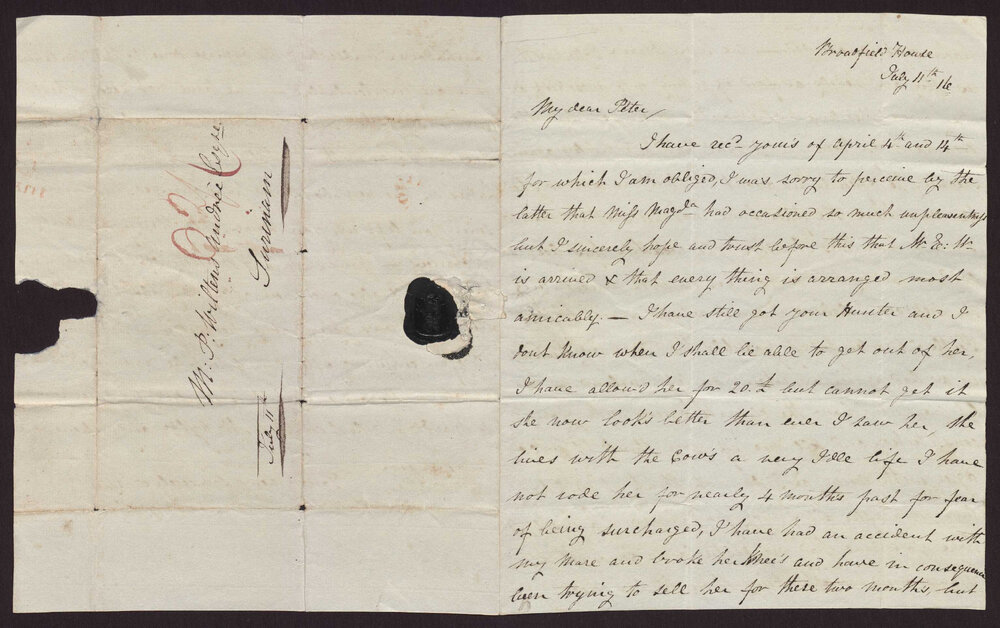 Mr. P. Wiltens Andreé Esqre.
Surinam
July 11th
Broadfield House
July 11th 16
My dear Peter,
I have recd yours of April 4th and 14th
for which I am obliged, I was sorry to perceive by the
latter that Miss Magda had occasioned so much unpleasentness
but I sincerely hope and trust before this that Mr E: W.
is arrived & that every thing is arranged most
amicably. — I have still got your Hunter and I
dont know when I shall be able to get out of her,
I have allowd her for 20.£ but cannot get it
she now look's better than ever I saw her, she
lives with the Cows a very Idle life I have
not rode her for nearly 4 months past for fear
of being surcharged, I have had an accident with
my Mare and broke her Knee's and have in consequence
been trying to sell her for these two months, but